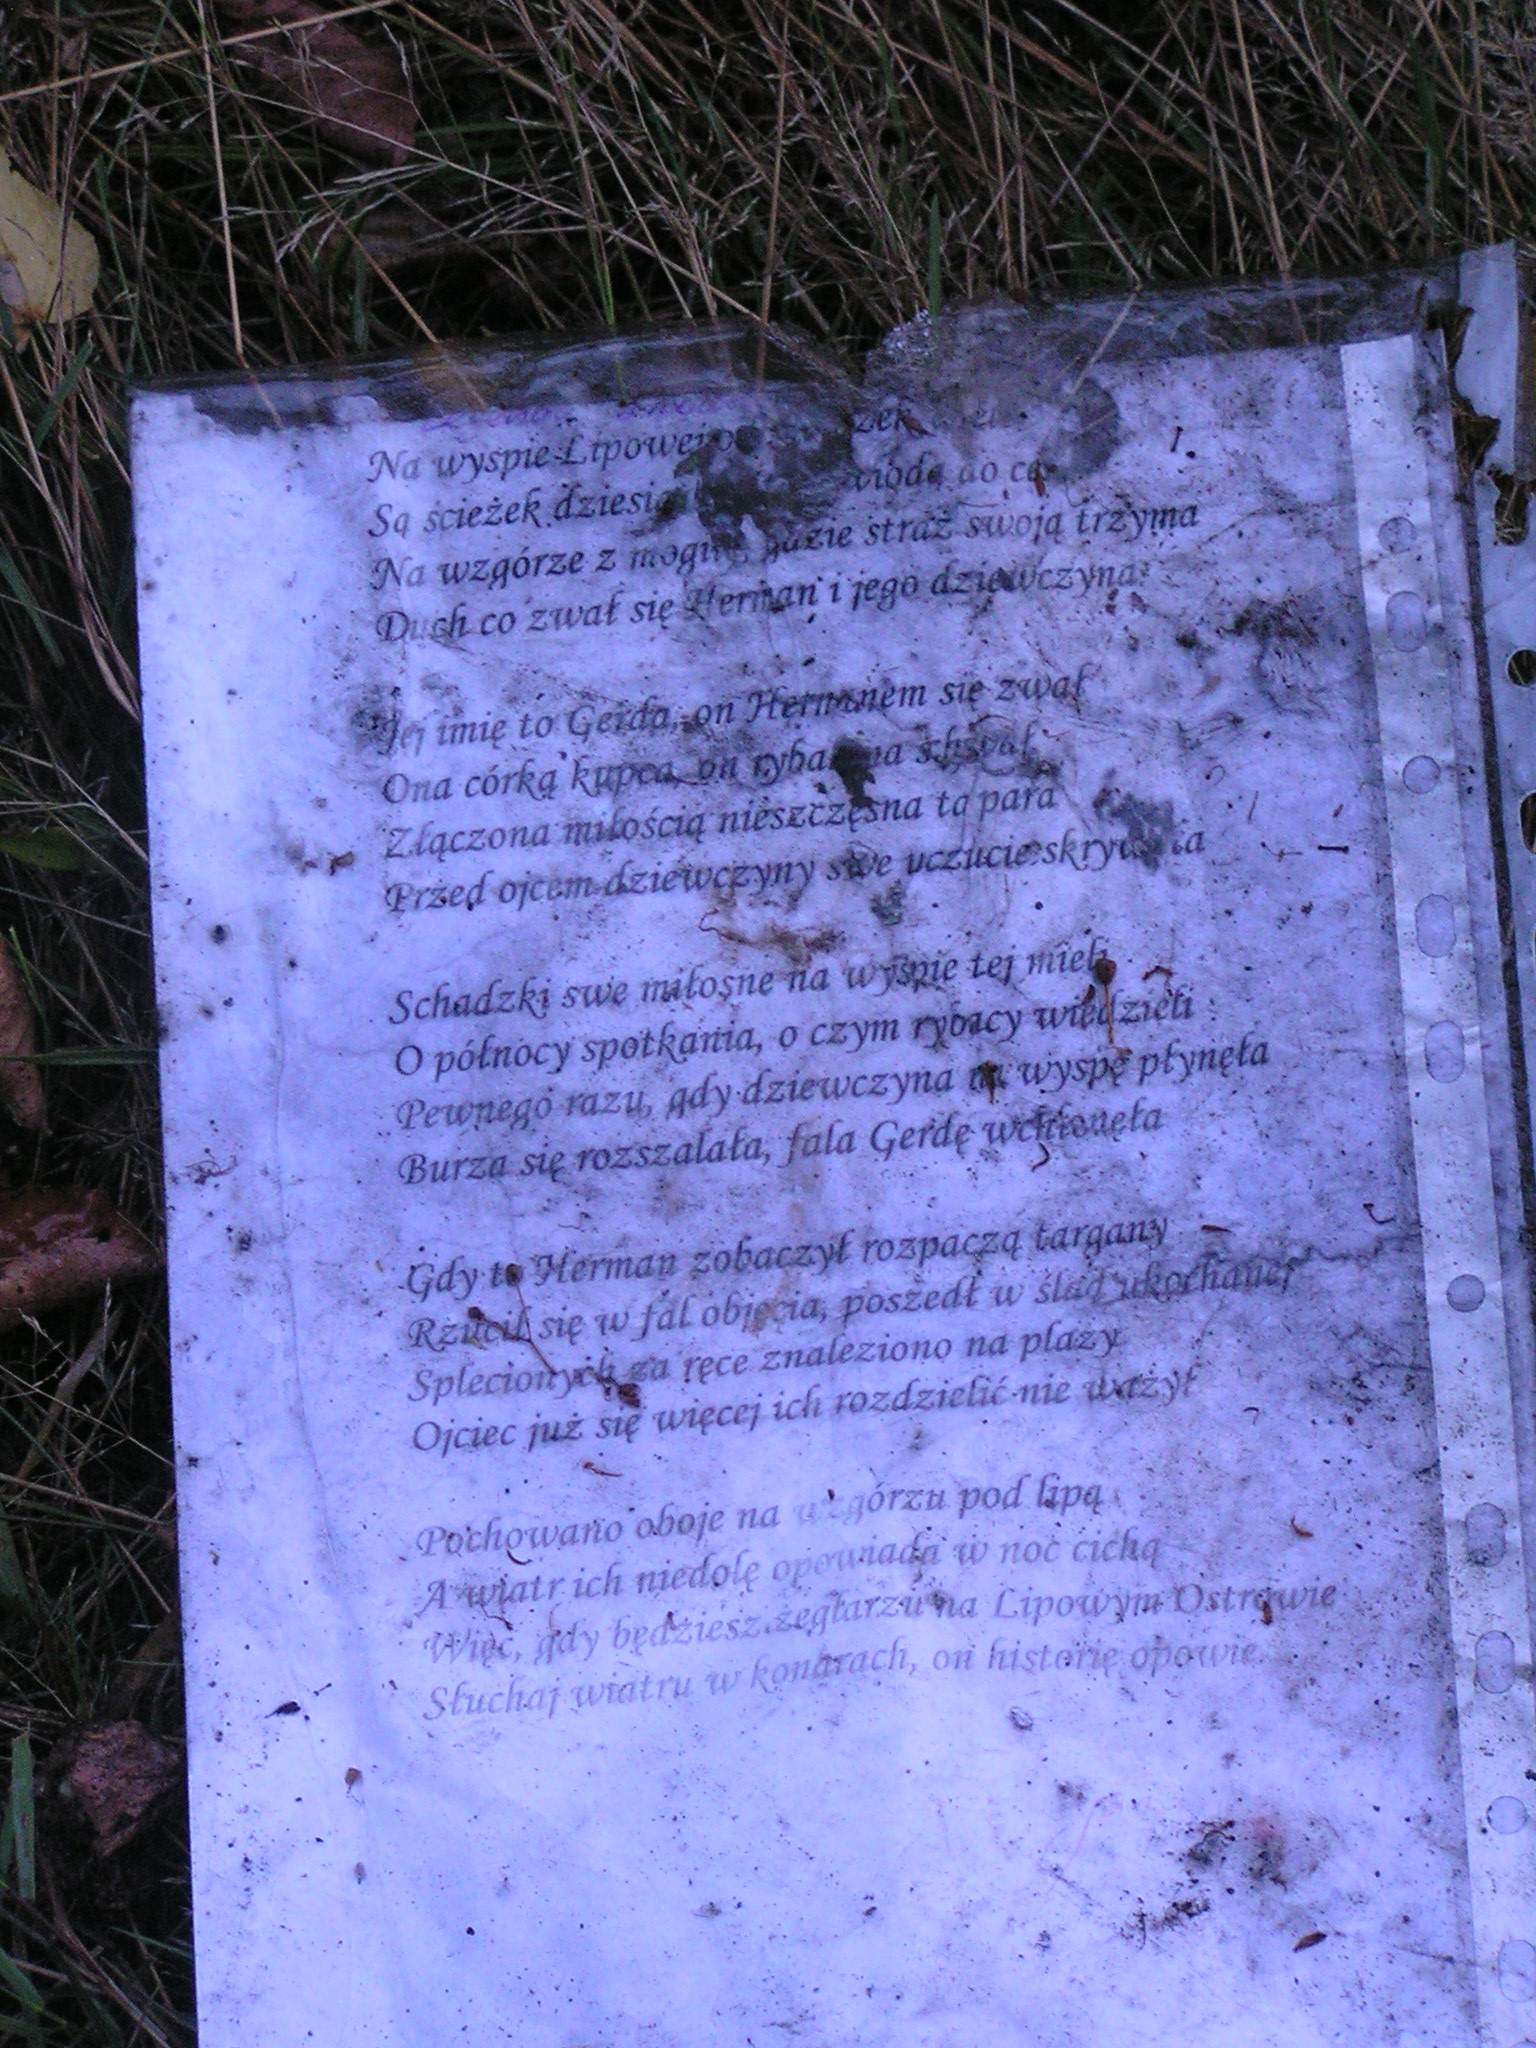 Na wyspie Lipowej
Są ścieżek wiodą do
Na wzgórze z mogiłą, gdzie straż swoją trzyma
Duch co zwał się Herman i jego dziewczyna.
Jej imię to Gerda, on Hermanem się zwał
Ona córką kupca, on
Złączona miłością nieszczęsna ta para
Przed ojcem dziewczyny swe uczucie skrywała
Schadzki swe miłosne na wyspie tej mieli
O północy spotkania, o czym rybacy wiedzieli
Pewnego razu, gdy dziewczyna na wyspę płynęła
Burza się rozszalała, fala Gerdę wchłonęła
Gdy to Herman zobaczył rozpaczą targany
Rzucił się w fal objęcia, poszedł w ślad ukochanej
Splecionych za ręce znaleziono na plaży
Ojciec już się więcej ich rozdzielić nie ważył
Pochowano oboje na wzgórzu pod lipą
A wiatr ich niedolę opowiada w noc cichą
Więc, gdy będziesz żeglarzu na Lipowym Ostrowie
Słuchaj wiatru w konarach, on historię opowie.